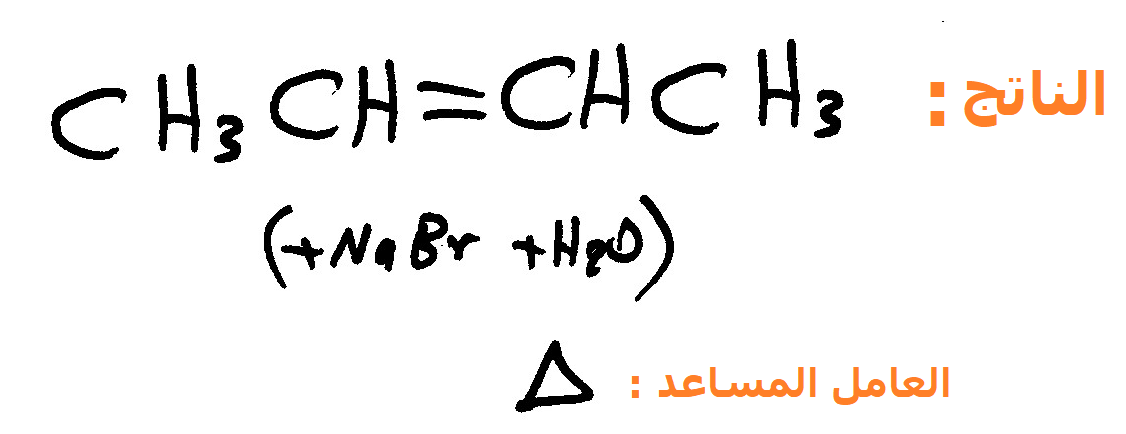 الناتج : CH3CH=CHCH3
(+NaBr +H2O)
العامل المساعد : Δ